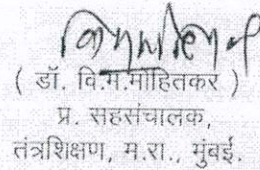 ( डॉ. वि.म.मोहितकर )
प्र. सहसंचालक,
तंत्रशिक्षण, म.रा., मुंबई.